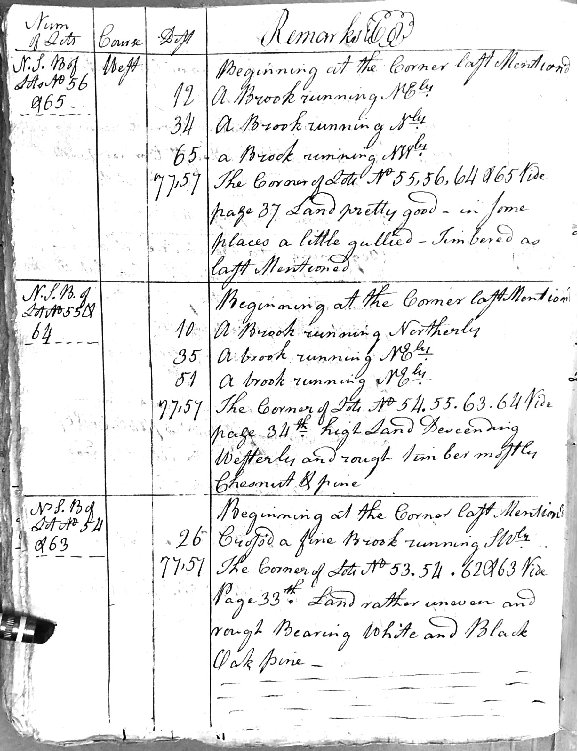 Num of Lots Course Dist Remarks &C
N. S. B of West Beginning at the Corner last Mentiond
Lots No 56 12 A Brook running NEly
&65 34 A Brook running Nly
65 a Brook running NWly
77,57 The Corner of Lots No 55, 56, 64 &65 Vide
page 37 Land pretty good - in some
places a little gullied - Timbered as
last Mentioned
N. S. B. of Beginning at the Corner last Mention'd
Lot No 55 & 10 A Brook running Northerly
64 35 A brook running NEly
51 A brook running NEly
77,57 The Corner of Lots No 54. 55. 63. 64 Vide
page 34th high Land Descending
Westerly and rough Timber mostly
Chesnut & pine
N. S. B of Beginning at the Corner last Mentiond
Lot No 54 26 Cross'd a fine Brook running SWly
&63 77,57 The Corner of Lots No 53. 54. 62 &63 Vide
Page 33th Land rather uneven and
rough Bearing White and Black
Oak pine -